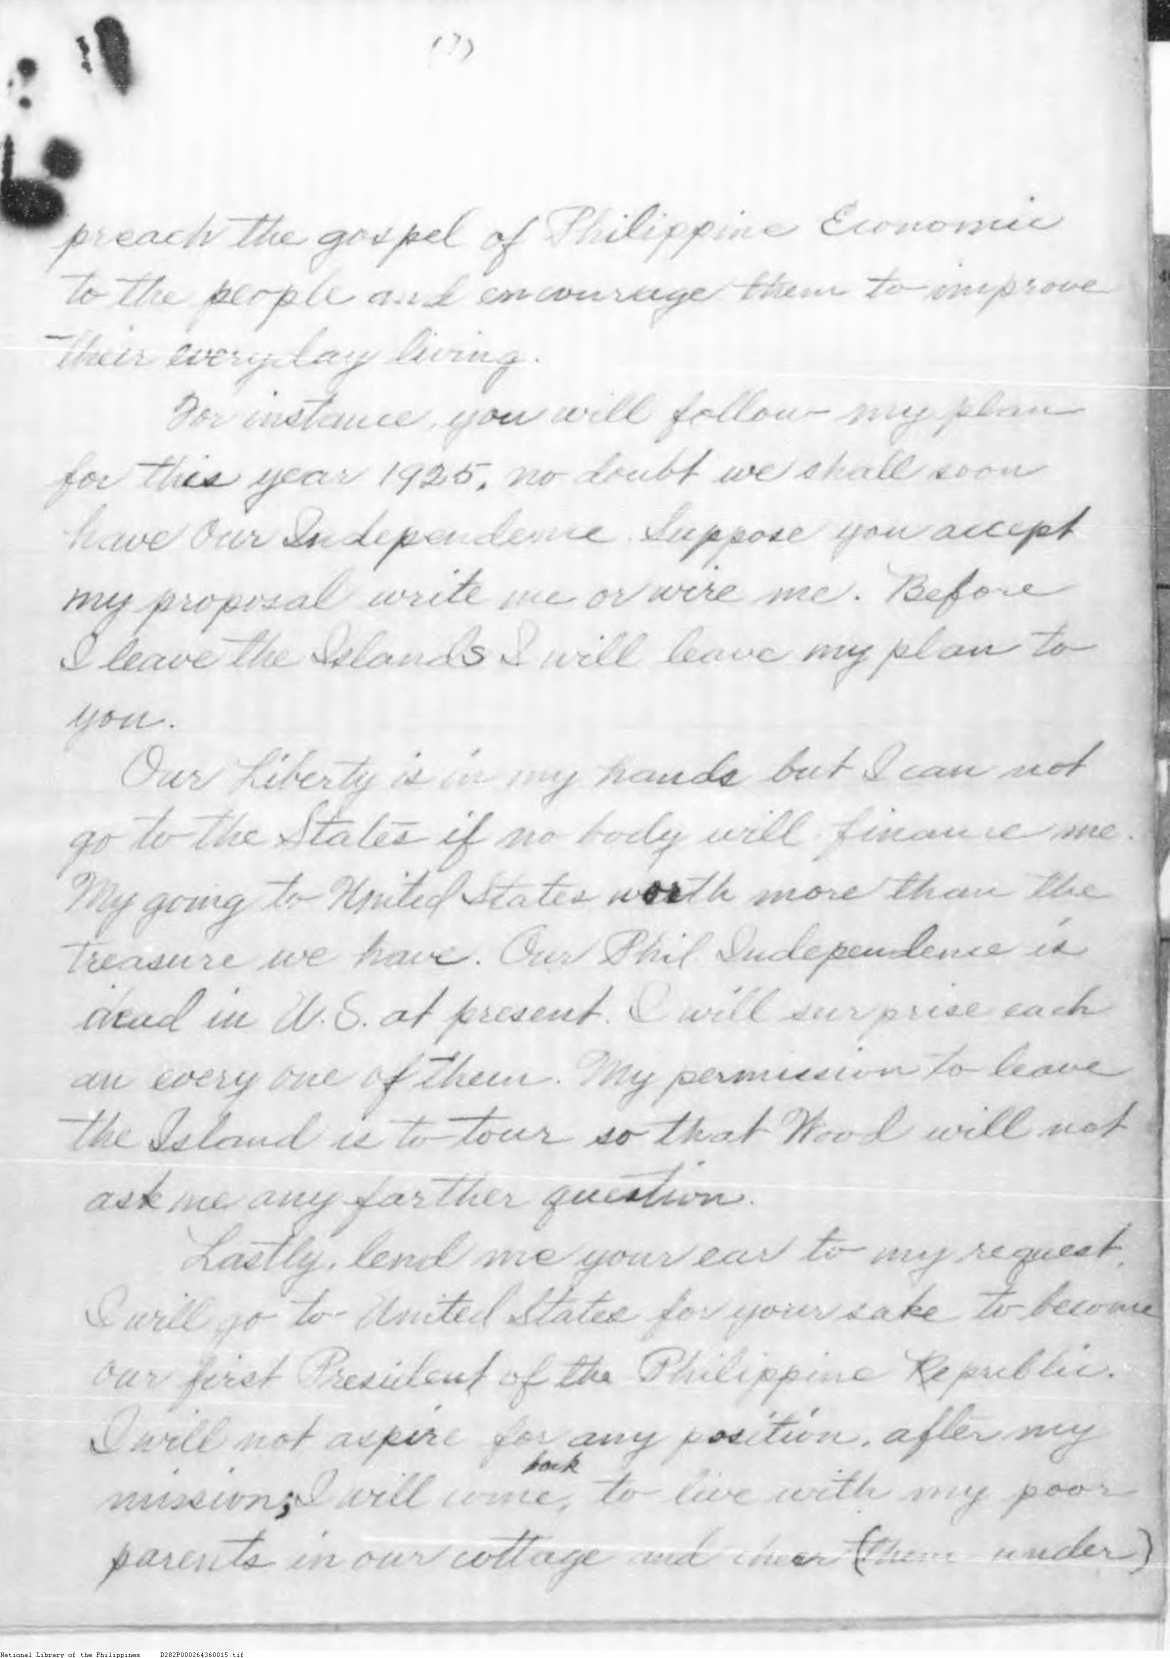 (7)
preach the gospel of Philippine Economic
to the people and encourage them to improve
their everyday living.
For instance, you will follow my plan
for this year 1925, no doubt we shall soon
have Our Independence. Suppose you accept
my proposal write me or wire me. Before
I leave the Islands I will leave my plan to
you.
Our Liberty is in my hands but I can not
go to the States if no body will finance me.
My going to United States worth more than the
treasure we have. Our Phil Independence is
dead in U.S. at present. I will surprise each
an every one of them. My permission to leave
the Island is to tour so that Wood will not
ask me any farther question.
Lastly, lend me your ear to my request.
I will go to United States for your sake to become
our first President of the Philippine Republic.
I will not aspire for any position, after my
mission; I will come back, to live with my poor
parents in our cottage and cheer (them under)
National Library of the Philippines D282P000264360015.tif